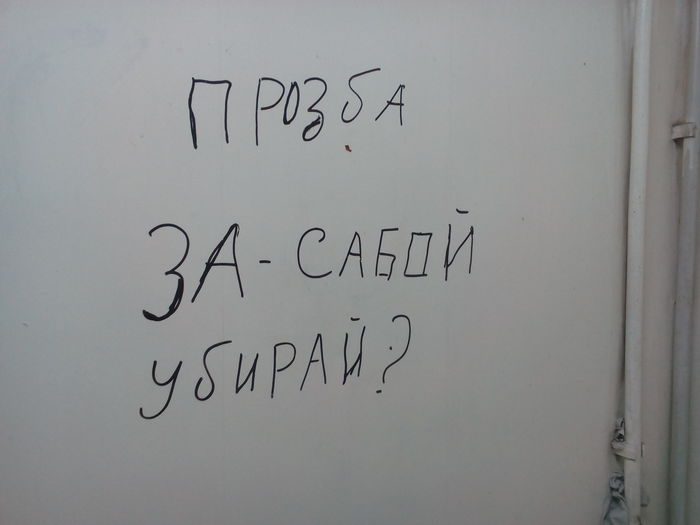 ПРОЗБА
ЗА-САБОЙ
УБИРАЙ?